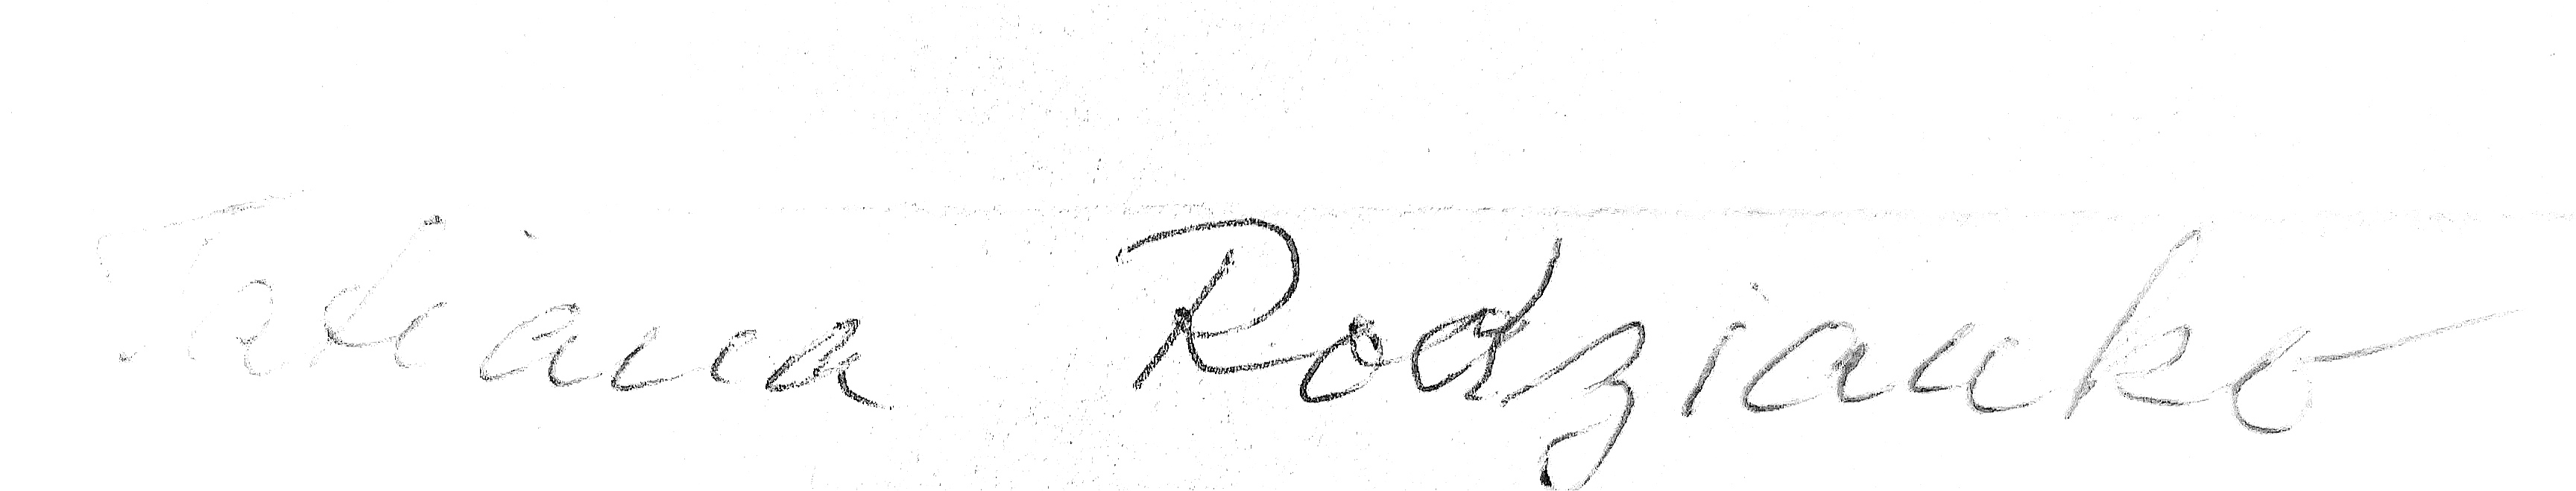 Tatiana Rodzianko